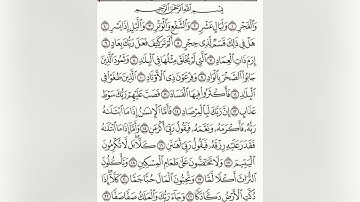 بِسْمِ اللَّهِ الرَّحْمَٰنِ الرَّحِيمِ
وَالْفَجْرِ ١ وَلَيَالٍ عَشْرٍ ٢ وَالشَّفْعِ وَالْوَتْرِ ٣ وَاللَّيْلِ إِذَا يَسْرِ ٤
هَلْ فِي ذَٰلِكَ قَسَمٌ لِّذِي حِجْرٍ ٥ أَلَمْ تَرَ كَيْفَ فَعَلَ رَبُّكَ بِعَادٍ ٦
إِرَمَ ذَاتِ الْعِمَادِ ٧ الَّتِي لَمْ يُخْلَقْ مِثْلُهَا فِي الْبِلَادِ ٨ وَثَمُودَ الَّذِينَ
جَابُوا الصَّخْرَ بِالْوَادِ ٩ وَفِرْعَوْنَ ذِي الْأَوْتَادِ ١٠ الَّذِينَ طَغَوْا فِي
الْبِلَادِ ١١ فَأَكْثَرُوا فِيهَا الْفَسَادَ ١٢ فَصَبَّ عَلَيْهِمْ رَبُّكَ سَوْطَ
عَذَابٍ ١٣ إِنَّ رَبَّكَ لَبِالْمِرْصَادِ ١٤ فَأَمَّا الْإِنسَانُ إِذَا مَا ابْتَلَاهُ
رَبُّهُ فَأَكْرَمَهُ وَنَعَّمَهُ فَيَقُولُ رَبِّي أَكْرَمَنِ ١٥ وَأَمَّا إِذَا مَا ابْتَلَاهُ
فَقَدَرَ عَلَيْهِ رِزْقَهُ فَيَقُولُ رَبِّي أَهَانَنِ ١٦ كَلَّا بَل لَّا تُكْرِمُونَ
الْيَتِيمَ ١٧ وَلَا تَحَاضُّونَ عَلَىٰ طَعَامِ الْمِسْكِينِ ١٨ وَتَأْكُلُونَ
التُّرَاثَ أَكْلًا لَّمًّا ١٩ وَتُحِبُّونَ الْمَالَ حُبًّا جَمًّا ٢٠ كَلَّا إِذَا
دُكَّتِ الْأَرْضُ دَكًّا دَكًّا ٢١ وَجَاءَ رَبُّكَ وَالْمَلَكُ صَفًّا صَفًّا ٢٢